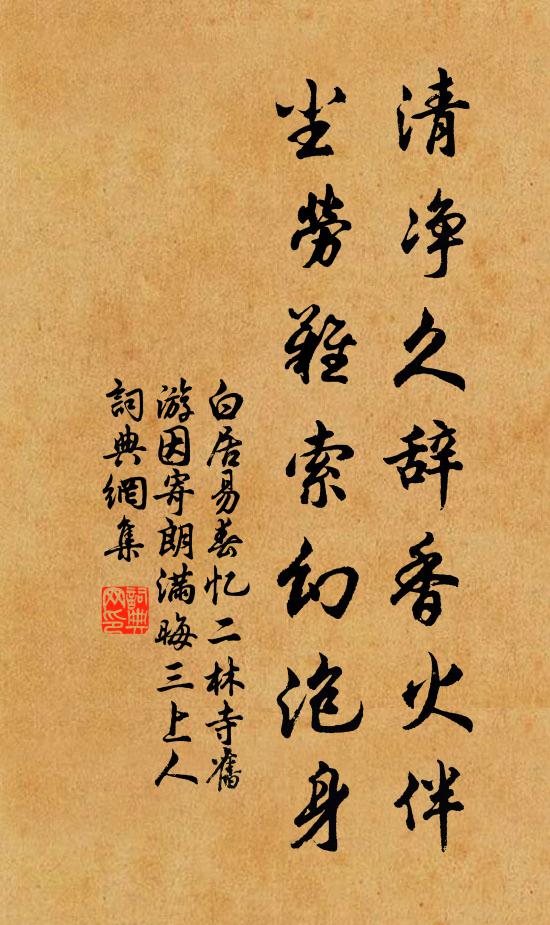 清净久辞香火伴
尘劳难索幻泡身
白居易春忆二林寺舊
游因寄朗满晦三上人
詞典網集
詞典
网印